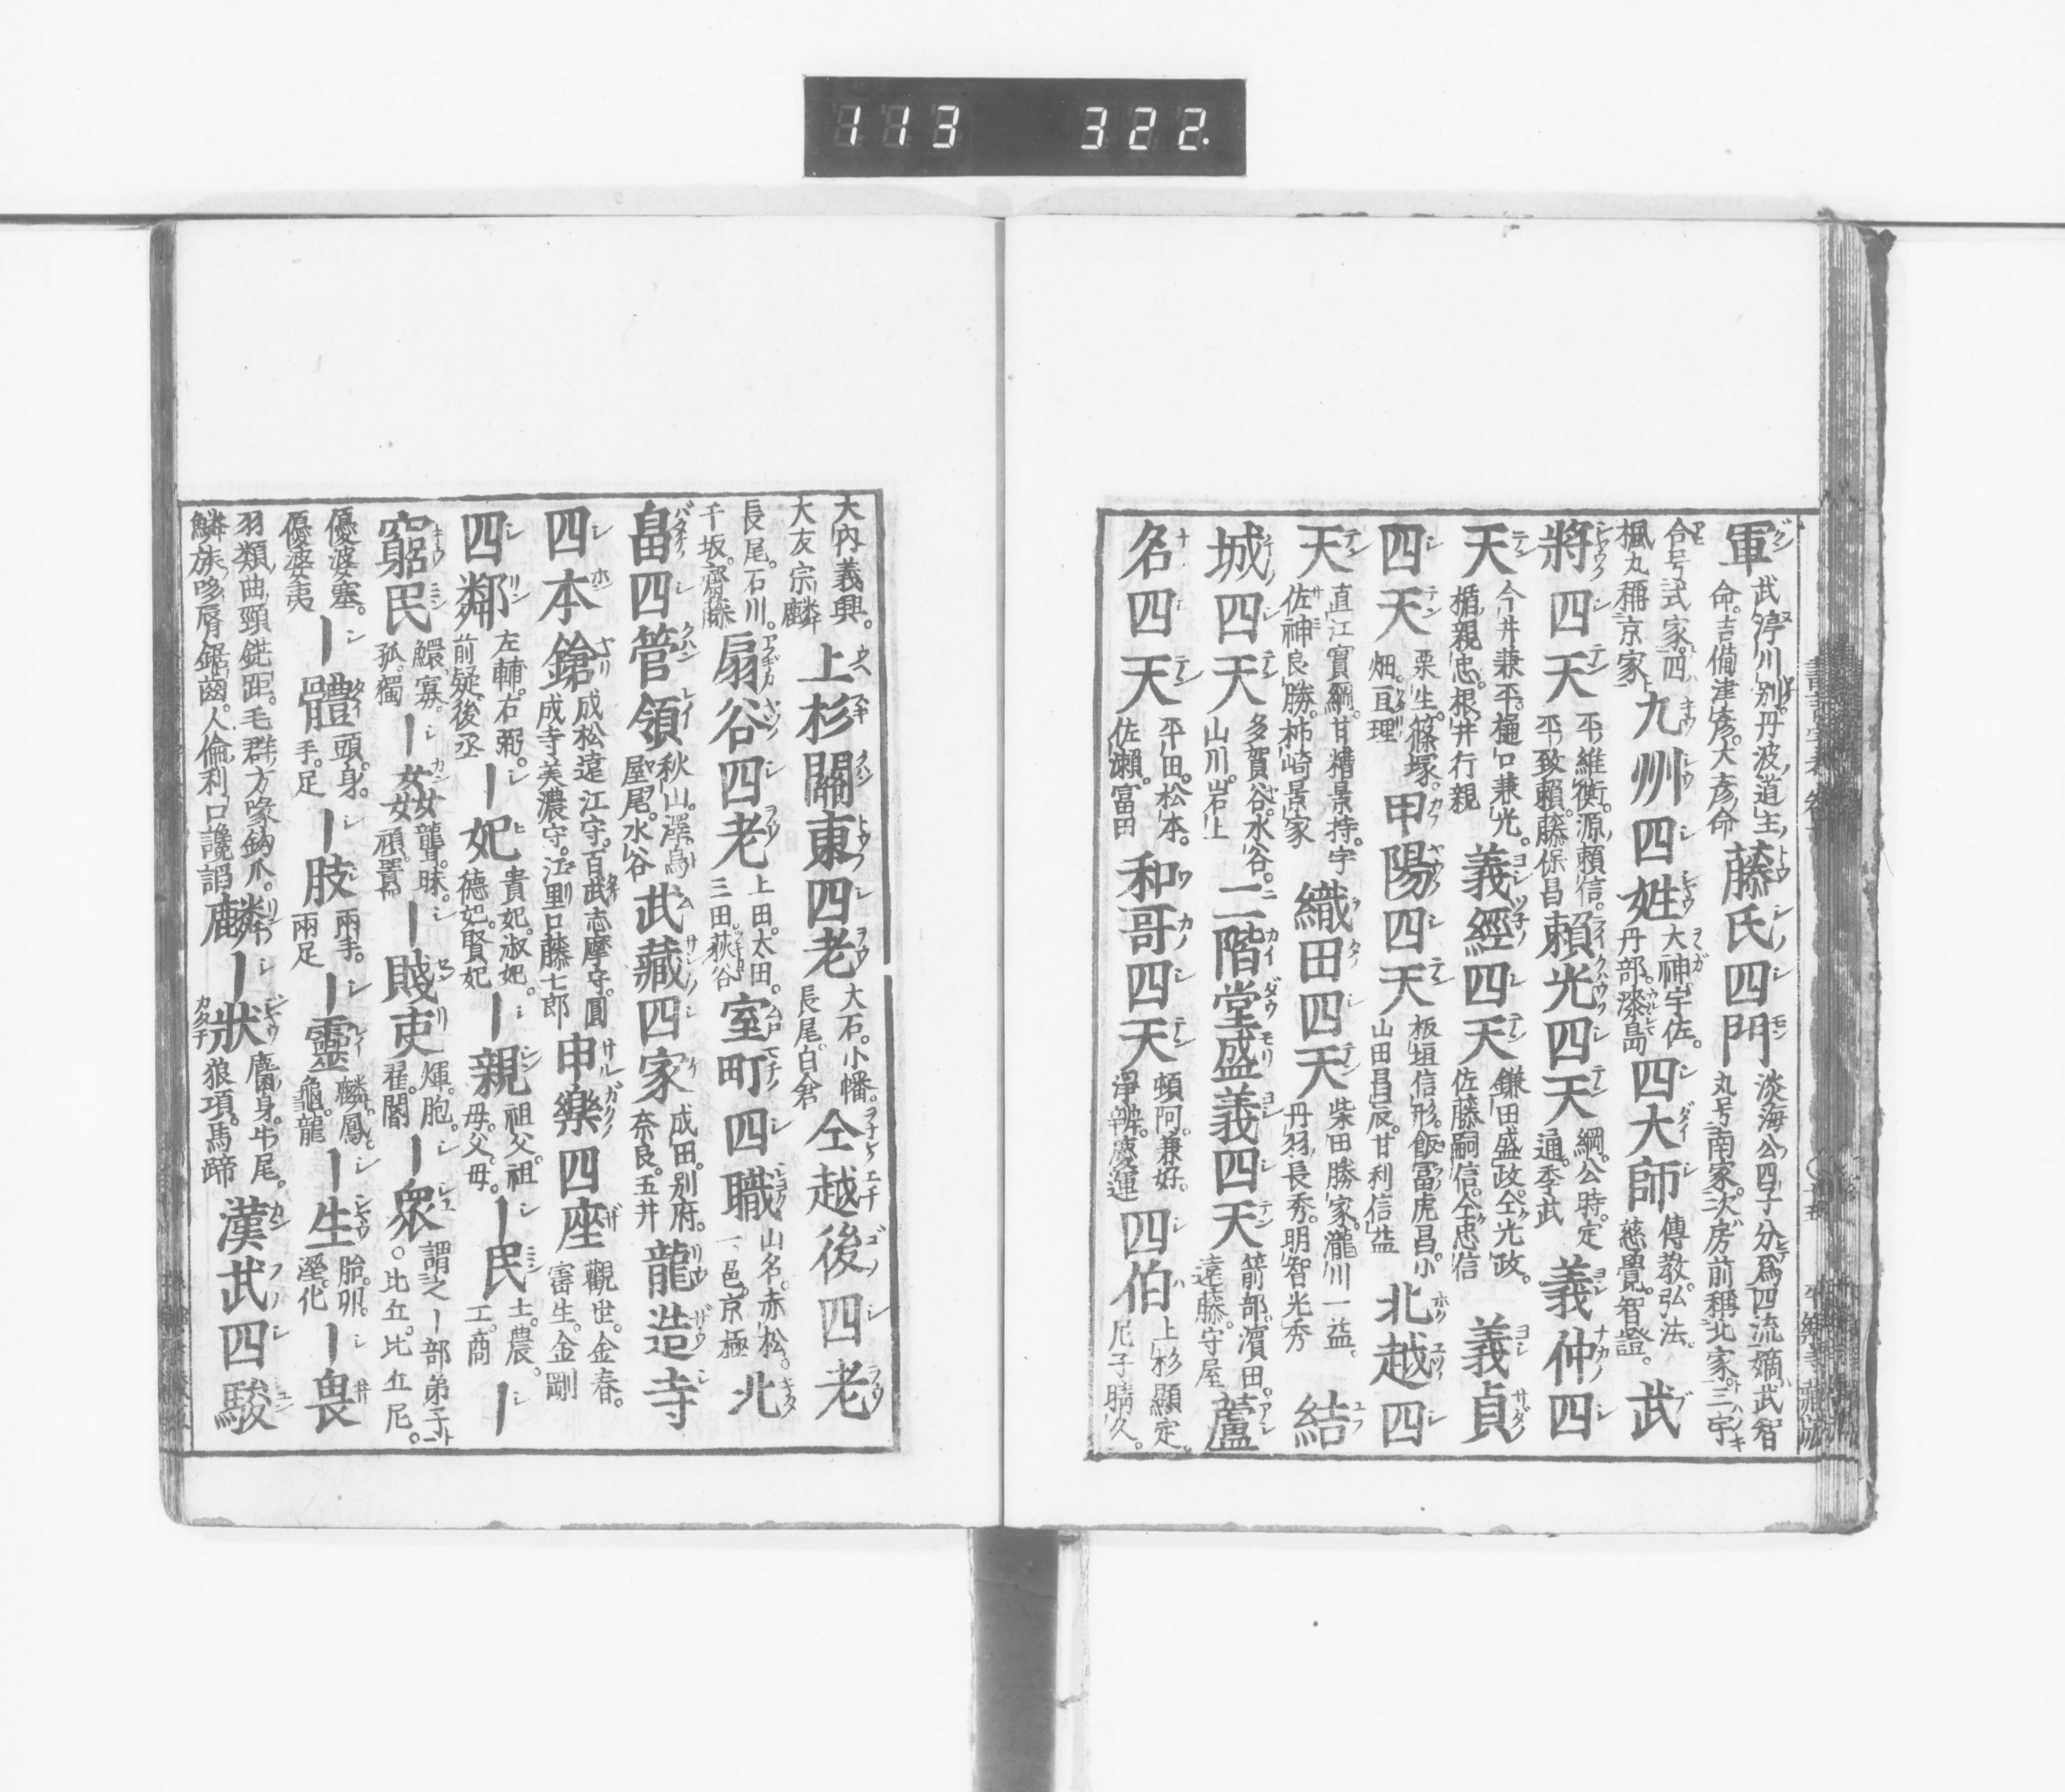 113 322.
軍 武渟川別。丹波道主命。吉備津彦。大彦命 藤氏四門 淡海公四子分爲四流嫡武智丸号南家。次房前稱北家。三宇
合号式家。四楓丸稱京家 九州四姓 大神。宇佐。丹部。漆島 四大師 傳教。弘法。慈覺。智證。 武
將四天 平維衡。源賴信。平致賴。藤保昌 賴光四天 綱。公時。定通。季武 義仲四
天 今井兼平。樋口兼光。楯親忠。根井行親 義經四天 鎌田盛政。仝光政。佐藤嗣信。仝忠信 義貞
四天 栗生。篠塚。畑。亘理 甲陽四天 板垣信形。飯冨虎昌。小山田昌辰。甘利信益 北越四
天 直江實綱。甘糟景持。宇佐神良勝。柿崎景家 織田四天 柴田勝家。瀧川一益。丹羽長秀。明智光秀 結
城四天 多賀谷。水谷。山川。岩上 二階堂盛義四天 箭部。濱田。遠藤。守屋 蘆
名四天 平田。松本。佐瀬。富田 和哥四天 頓阿。兼好。淨辨。慶運 四伯 上杉顯定。尼子晴久。
大内義興。大友宗麟 上杉關東四老 大石。小幡。長尾。白倉 仝越後四老
長尾。石川。千坂。齋藤 扇谷四老 上田。太田。三田。荻谷 室町四職 山名。赤松。一色。京極 北
畠四管領 秋山。澤。鳥屋尾。水谷 武藏四家 成田。別府。奈良。玉井 龍造寺
四本鎗 成松遠江守。百武志摩守。圓成寺美濃守。江里口藤七郎 申樂四座 觀世。金春。寶生。金剛
四鄰 左輔。右弼。前疑。後丞 ー妃 貴妃。淑妃。德妃。賢妃 ー親 祖父。祖母。父。母。 ー民 士。農。工。商 ー
窮民 鰥。寡。孤。獨 ー姦 聾。昧。頑。嚚 ー賤吏 煇。胞。翟。閽 ー衆 謂之ー部弟子ト。比丘。比丘尼。
優婆塞。優婆夷 ー體 頭。身。手。足 ー肢 兩手。兩足 ー靈 麟。鳳。龜。龍 ー生 胎。卵。溼。化 ー畏
羽類曲頸銑距。毛群方喙鈎爪。鱗族哆脣鋸齒。人倫利口讒謟 麟ー狀 麕身。牛尾。狼項。馬蹄 漢武四駿